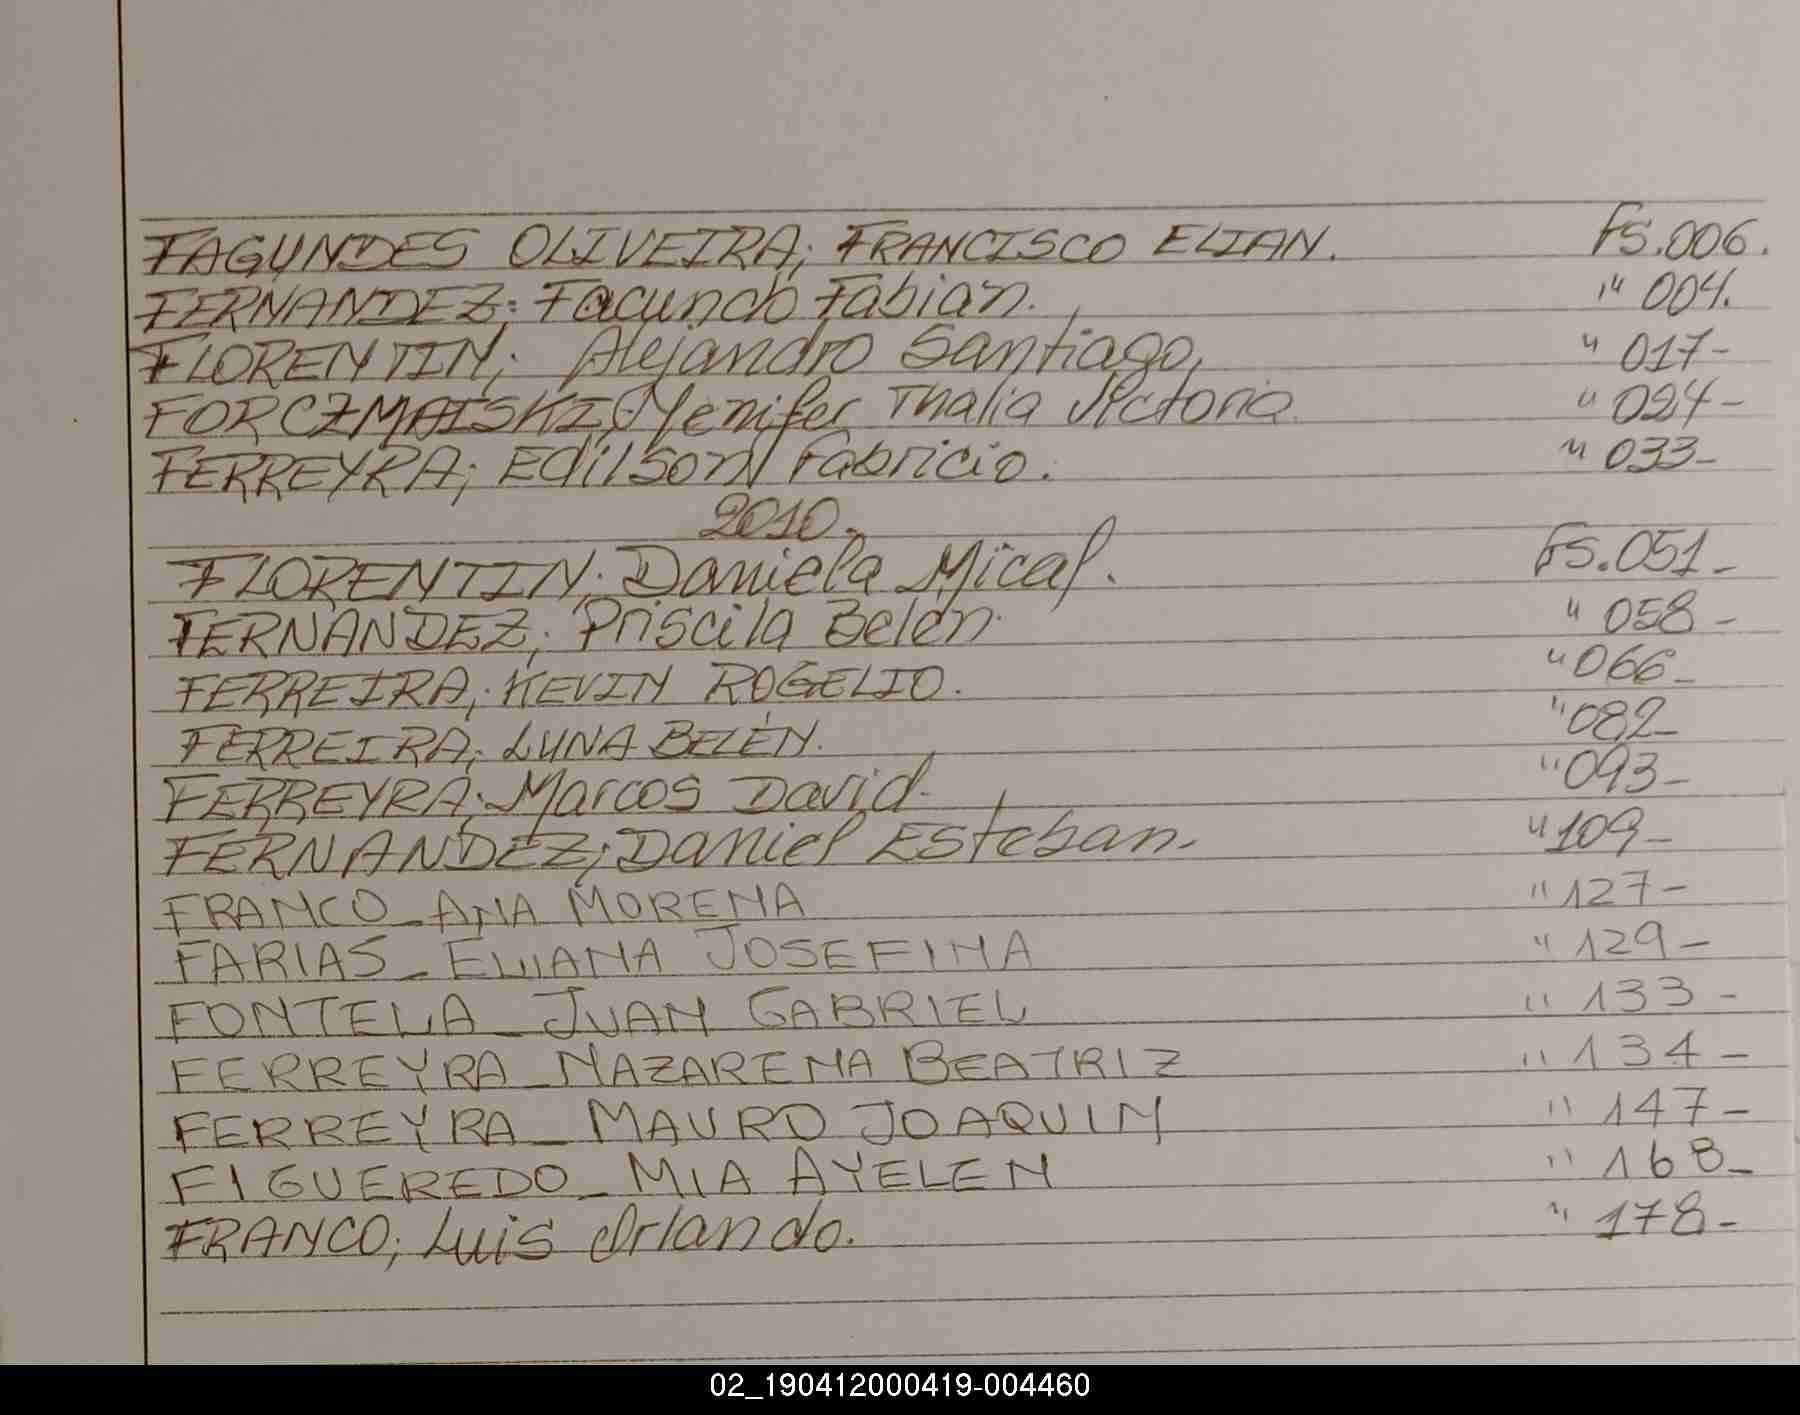 FAGUNDES OLIVEIRA; FRANCISCO ELIAN. FS.006.
FERNANDEZ; Facundo Fabian. " 004.
FLORENTIN; Alejandro Santiago, " 017-
FORCZMAISKI; Yenifer Thalia Victoria " 024-
FERREYRA; Edilson Fabricio. " 033-
2010.
FLORENTIN; Daniela Mical. FS.051-
FERNANDEZ; Priscila Belen. " 058-
FERREIRA; KEVIN ROGELIO. " 066-
FERREIRA; LUNA BELÉN. " 082-
FERREYRA; Marcos David. " 093-
FERNANDEZ; Daniel Esteban. " 109-
FRANCO_ANA MORENA " 127-
FARIAS_ELIANA JOSEFINA " 129-
FONTELA_JUAN GABRIEL " 133-
FERREYRA_NAZARENA BEATRIZ " 134-
FERREYRA_MAURO JOAQUIN " 147-
FIGUEREDO_MIA AYELEN " 168-
FRANCO; Luis Orlando. " 178-
02_190412000419-004460